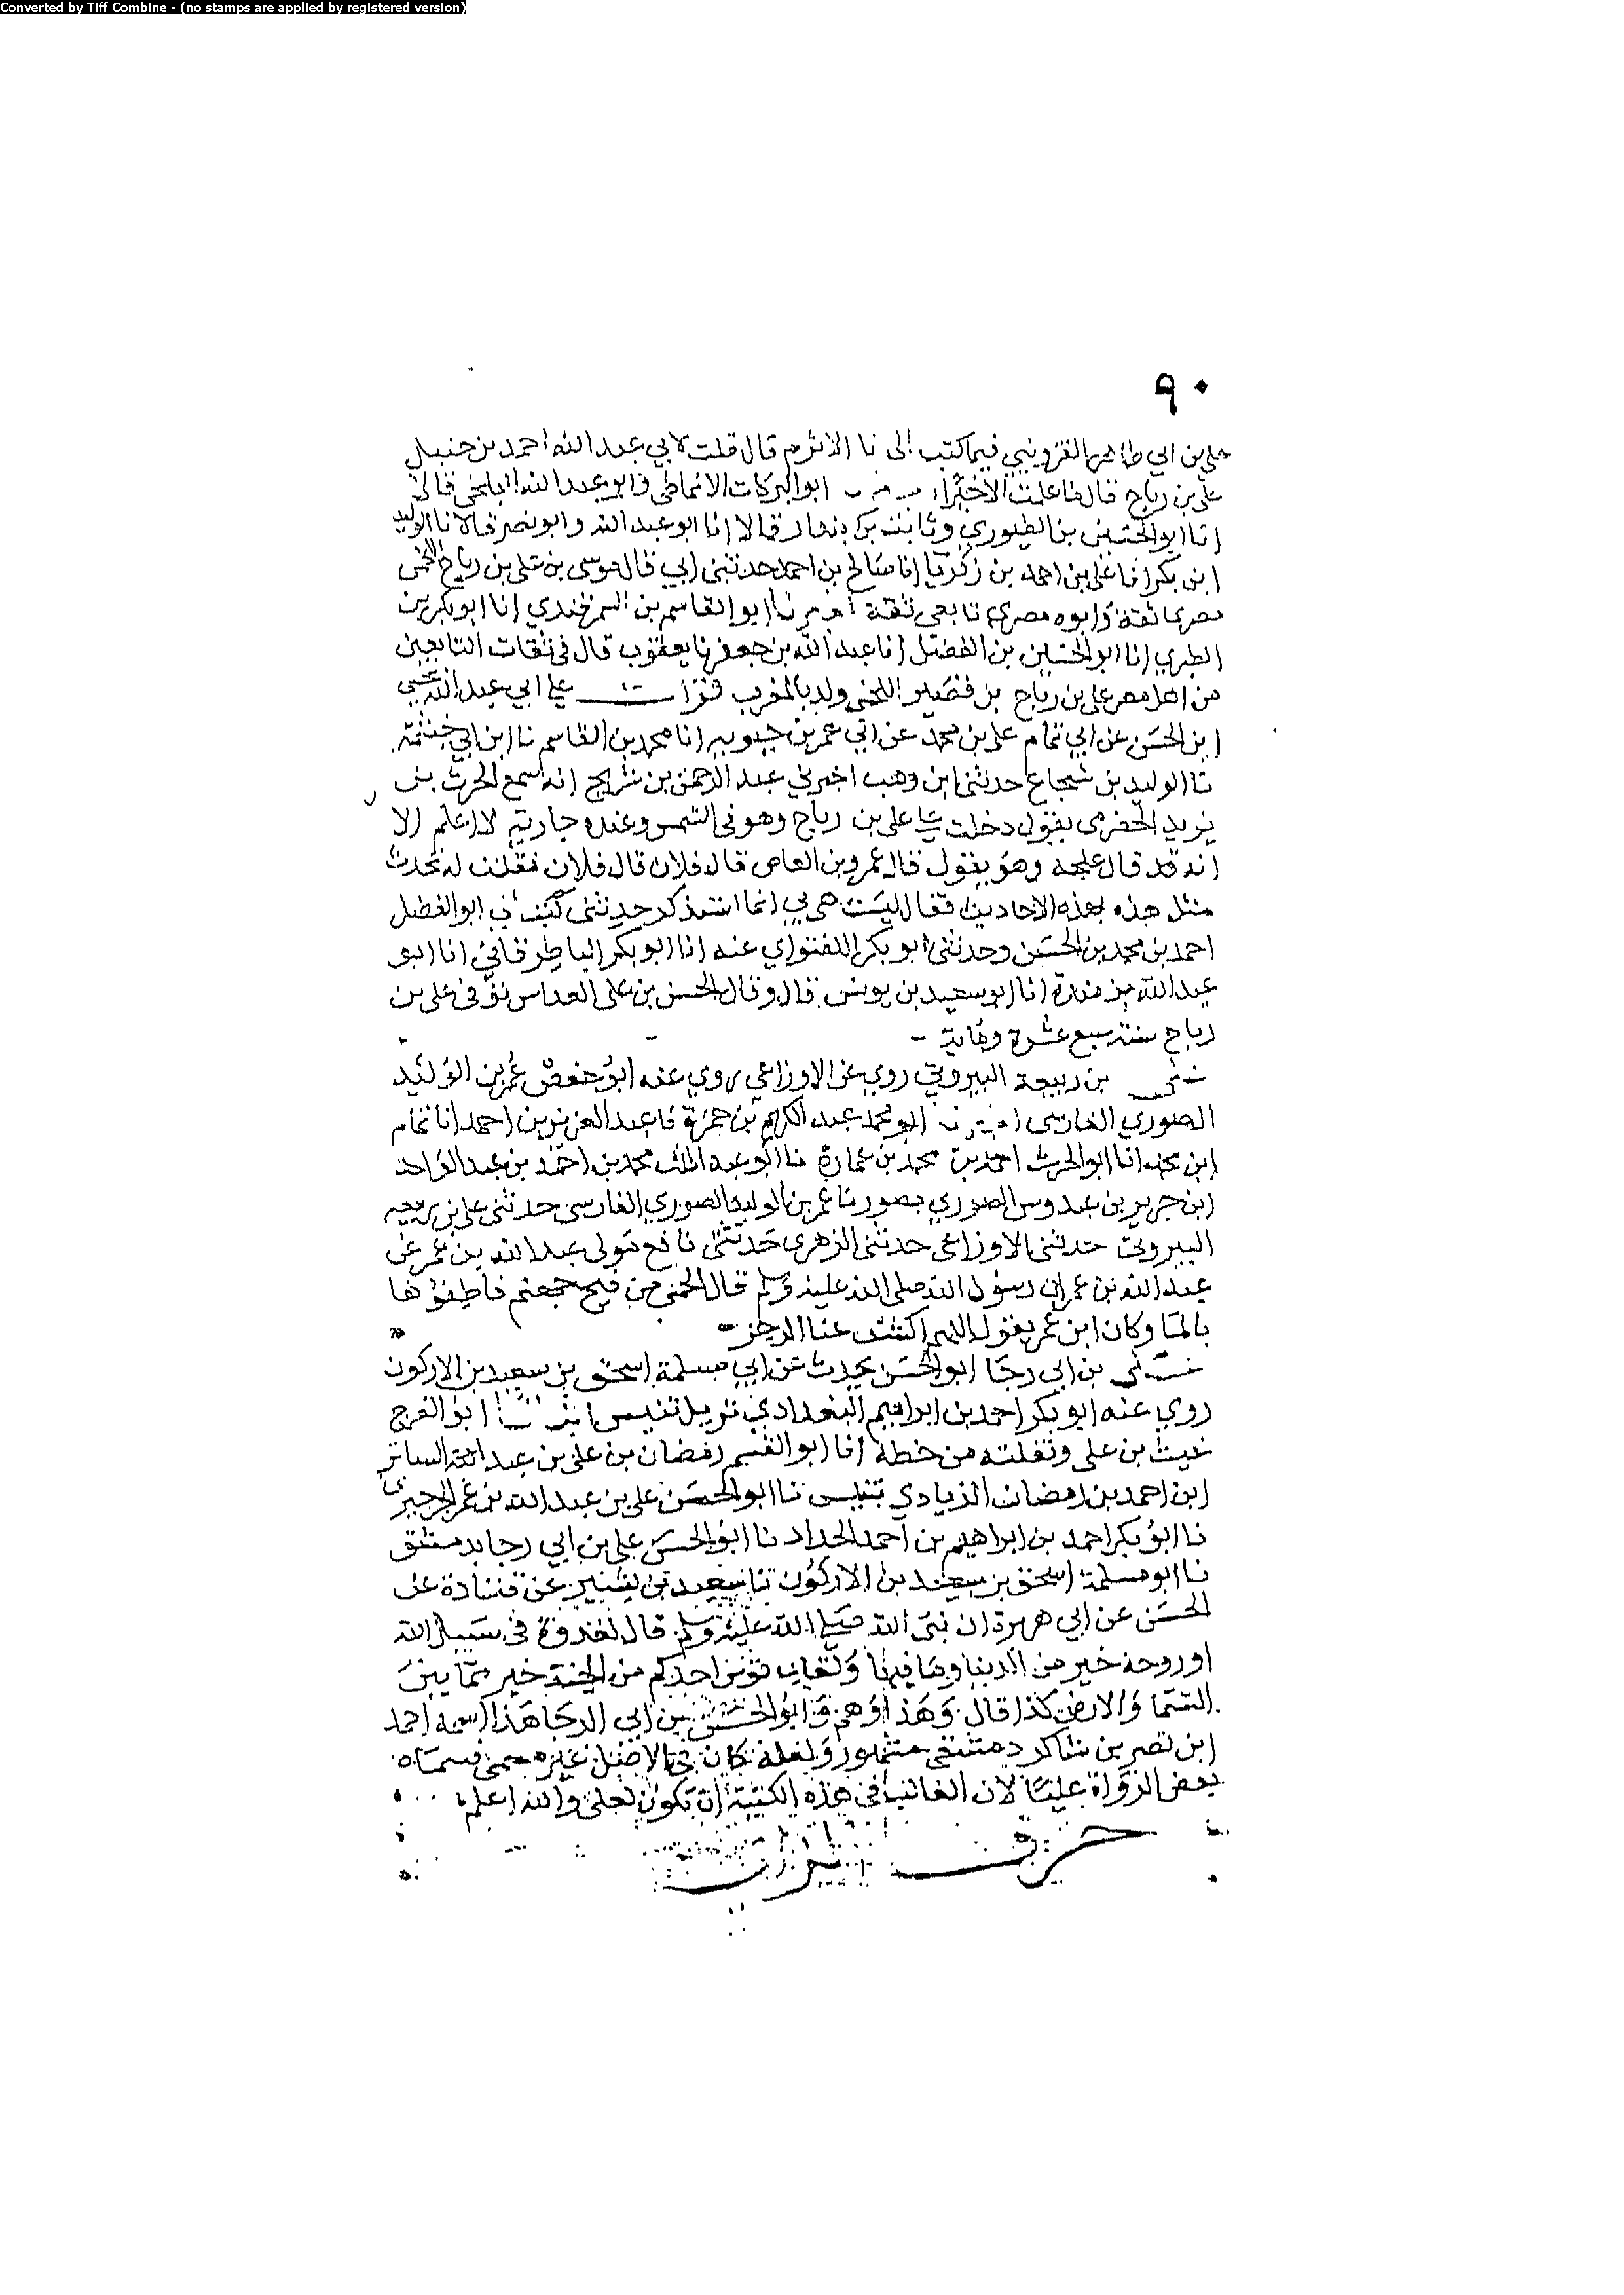 Converted by Tiff Combine - (no stamps are applied by registered version)
٩٠
علي بن ابي طاهر القزويني فيما كتب الى نا الاثرم قال قلت لابي عبد الله احمد بن حنبل
علي بن رباح قال ما علمت الا خيرا ابو البركات الانماطي وابو عبد الله البلخي قالا
انا ابو الحسين بن الطيوري وثابت بن بندار قالا انا ابو عبد الله وابو نصر قالا نا الوليد
ابن بكر انا علي بن احمد بن زكريا انا صالح بن احمد حدثني ابي قال موسى بن علي بن رباح اللخمي
مصري ثقة وابوه مصري تابعي ثقة اخبرنا ابو القاسم بن السمرقندي انا ابو بكر بن
الطبري انا ابو الحسين بن الفضل انا عبد الله بن جعفر نا يعقوب قال في ثقات التابعين
من اهل مصر علي بن رباح بن قصير اللخمي ولد بالمغرب قرات على ابي عبد الله يحيى
ابن الحسن عن ابي تمام علي بن محمد عن ابي عمر بن حيويه انا محمد بن القاسم نا ابن ابي خيثمة
نا الوليد بن شجاع حدثني ابن وهب اخبرني عبد الرحمن بن شريح انه سمع الحرث بن
يزيد الحضرمي يقول دخلت على علي بن رباح وهو في الشمس وعنده جارية لا اعلم الا
انه قد قال علجه وهو يقول قال عمرو بن العاص قال فلان قال فلان فقلت له تحدث
مثل هذه بهذه الاحاديث فقال ليست هي بي انما استذكر حديثي كتب الي ابو الفضل
احمد بن محمد بن الحسن وحدثني ابو بكر اللفتواني عنه انا ابو بكر الباطرقاني انا ابو
عبد الله بن مندة انا ابو سعيد بن يونس قال وقال الحسن بن علي العداس توفي علي بن
رباح سنة سبع عشرة ومائة
علي بن ربيعة البيروتي روى عن الاوزاعي روى عنه ابو حفص عمر بن الوليد
الصوري الفارسي اخبرنا ابو محمد عبد الكريم بن حمزة نا عبد العزيز بن احمد انا تمام
ابن محمد انا ابو الحرث احمد بن محمد بن عمارة نا ابو عبد الملك محمد بن احمد بن عبد الواحد
ابن جرير بن عبدوس الصوري بصور نا عمر بن الوليد الصوري الفارسي حدثني علي بن ربيعه
البيروتي حدثني الاوزاعي حدثني الزهري حدثني نافع مولى عبد الله بن عمر عن
عبد الله بن عمر ان رسول الله صلى الله عليه وسلم قال الحمى من فيح جهنم فاطفؤها
بالما وكان ابن عمر يقول اللهم اكشف عنا الرجز
علي بن ابي رجا ابو الحسن يحدث عن ابي مسلمة اسحق بن سعيد بن الاركون
روى عنه ابو بكر احمد بن ابراهيم البغدادي نزيل تنيس ابو الفرج
غيث بن علي ونقلته من خطه انا ابو القسم رمضان بن علي بن عبد الساتر
ابن احمد بن رمضان الزيادي بتنيس نا ابو الحسن علي بن عبد الله بن عمر
نا ابو بكر احمد بن ابراهيم بن احمد الحداد نا ابو الحسن علي بن ابي رجا بدمشق
نا ابو مسلمة اسحق بن سعيد بن الاركون نا سعيد بن بشير عن قتادة عن
الحسن عن ابي هريرة ان نبي الله صلى الله عليه وسلم قال لغدوة في سبيل الله
او روحة خير من الدنيا وما فيها ولقاب قوس احدكم من الجنة خير مما بين
السما والارض كذا قال وهذا وهم وابو الحسن بن ابي الرجا هذا اسمه احمد
ابن نصر بن شاكر دمشقي مشهور ولعله كان في الاصل غير مسمى فسماه
بعض الرواة عليا لان الغالب في هذه الكنية ان تكون لعلي والله اعلم
حرف الزاي